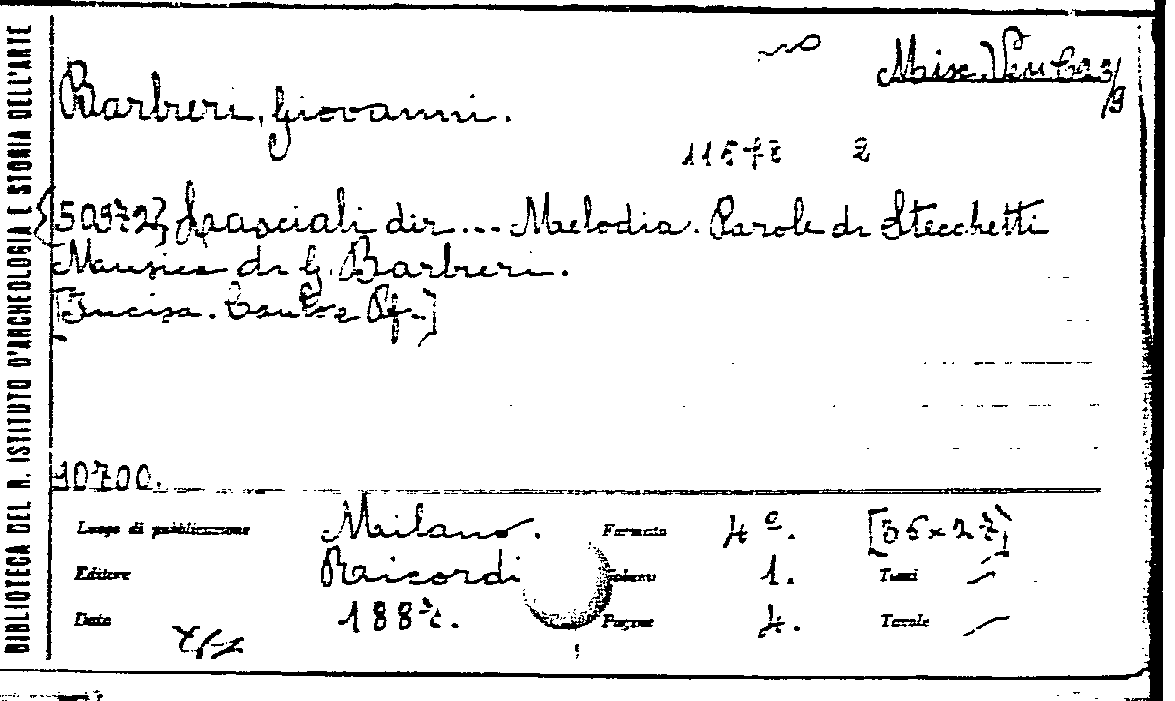 BIBLIOTECA DEL R. ISTITUTO D'ARCHEOLOGIA E STORIA DELL'ARTE
Misc. Ven
Barbieri, Giovanni.
2
[50972] Lasciali dir... Melodia. Parole di Stecchetti
Musica di G. Barbieri.
[Incisa. Canto e Pf.]
10700.
Luogo di pubblicazione Milano. Formato 4º. [35×27]
Editore Ricordi Volumi 1. Tomi –
Data 1887. Pagine 4. Tavole –